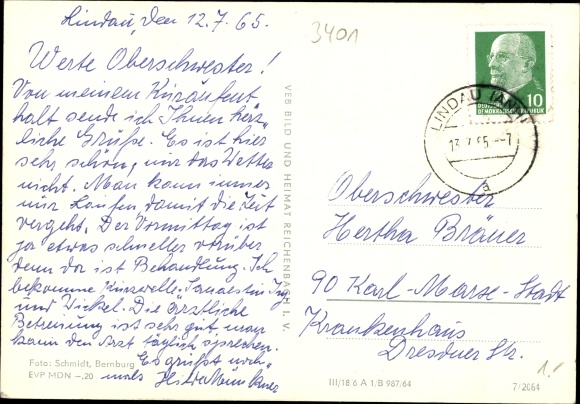 Lindau, den 12.7.65.
Werte Oberschwester!
Von meinem Kuraufent
halt sende ich Ihnen herz
liche Grüße. Es ist hier
sehr schön, nur das Wetter
nicht. Man kann immer
nur laufen damit die Zeit
vergeht. Der Vormittag ist
ja etwas schneller vorüber
denn da ist Behandlung. Ich
bekomme Kurzwelle
und Wickel. Die ärztliche
Betreuung ist sehr gut, man
kann den Arzt täglich sprechen.
Es grüßt noch
mals
Foto: Schmidt, Bernburg
EVP MDN -,20
VEB BILD UND HEIMAT REICHENBACH I. V.
3401
10
DEUTSCHE
DEMOKRATISCHE REPUBLIK
LINDAU (ANH)
13.7.65.-7
a
Oberschwester
Hertha Bräuer
90 Karl-Marx-Stadt
Krankenhaus
Dresdner Str.
1.-
III/18 6 A 1/B 987/64
7/2064